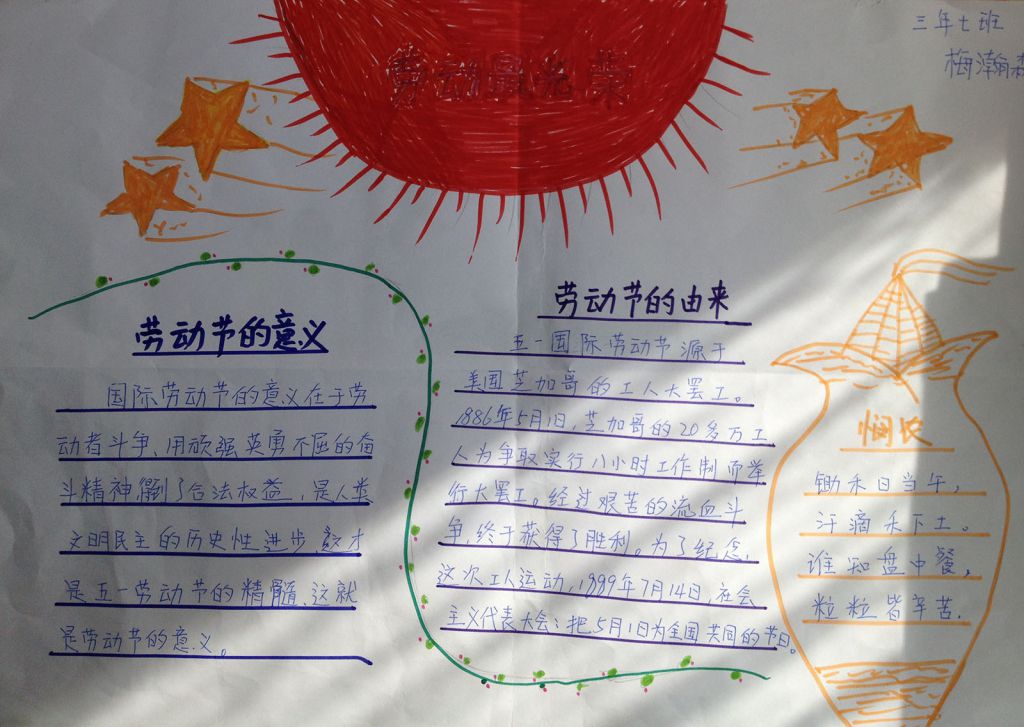 三年七班
梅瀚森
劳动最光荣
劳动节的意义
国际劳动节的意义在于劳
动者斗争、用顽强英勇不屈的奋
斗精神得到了合法权益，是人类
文明民主的历史性进步，这才
是五一劳动节的精髓，这就
是劳动节的意义。
劳动节的由来
五一国际劳动节源于
美国芝加哥的工人大罢工。
1886年5月1日，芝加哥的20多万工
人为争取实行八小时工作制而举
行大罢工。经过艰苦的流血斗
争，终于获得了胜利。为了纪念，
这次工人运动，1899年7月14日，社会
主义代表大会：把5月1日为全国共同的节日。
悯农
锄禾日当午，
汗滴禾下土。
谁知盘中餐，
粒粒皆辛苦.